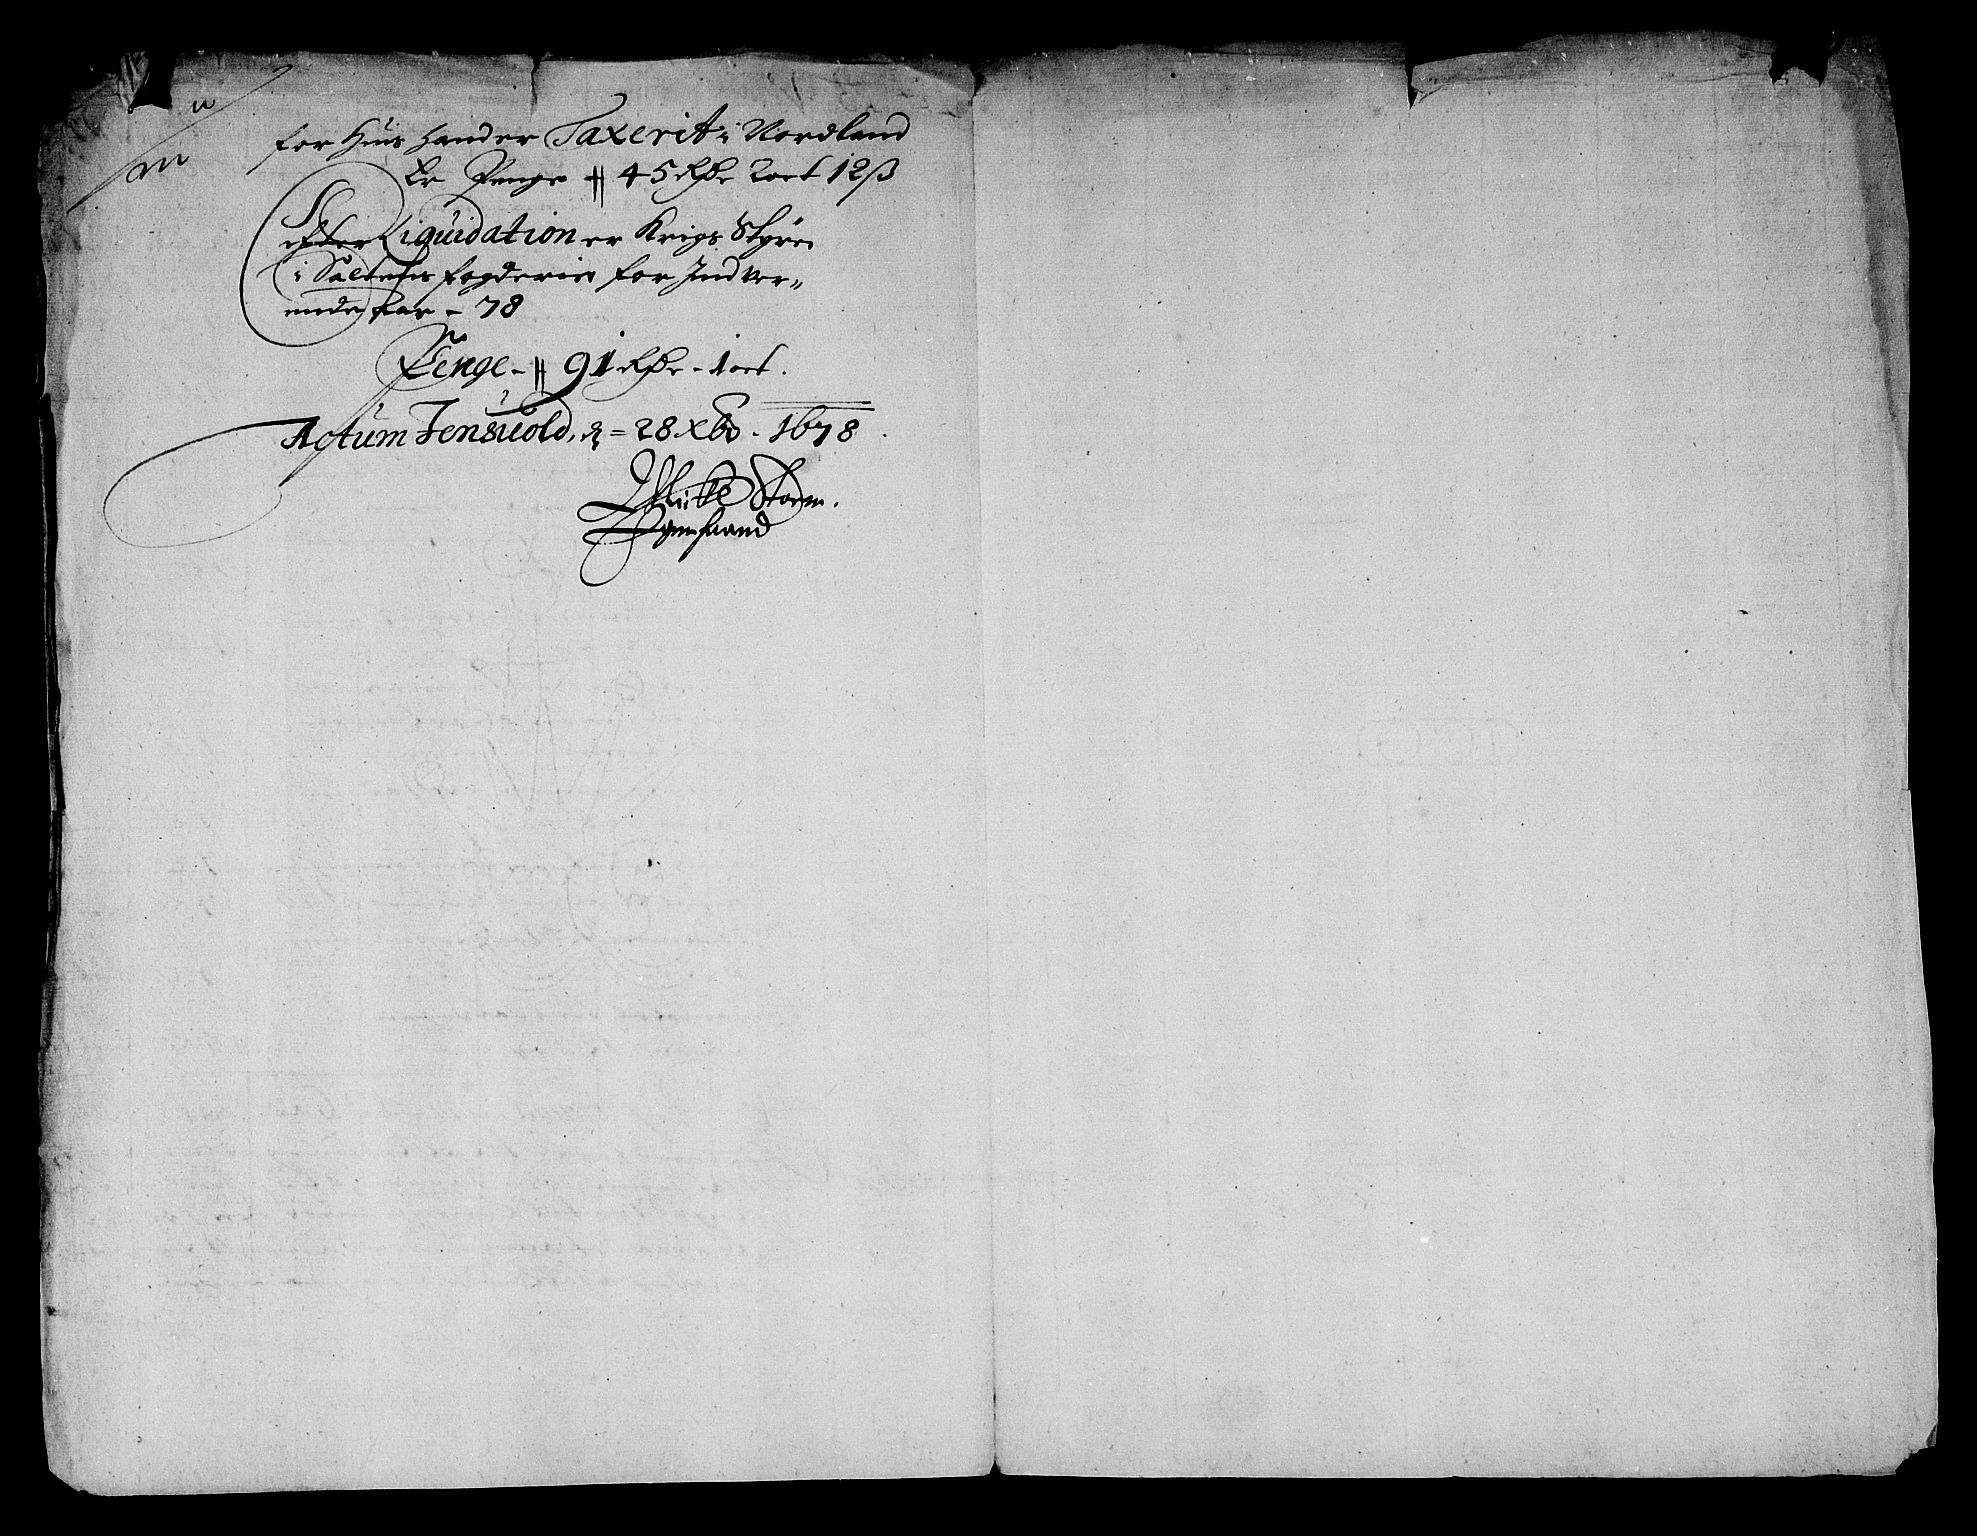 for Huis hand er Taxerit i Nordland
Er Penge # 45 Rdr 2 ort 12 ß
Efter Liquidation er Krigs Styren
i Saltens fogderie for Indver„
ende Aar - 78
Penge - # 91 Rdr - 1 ort.
Actum Jensuold, d = 28 Xbr - 1678.
Storm.
Egen haand